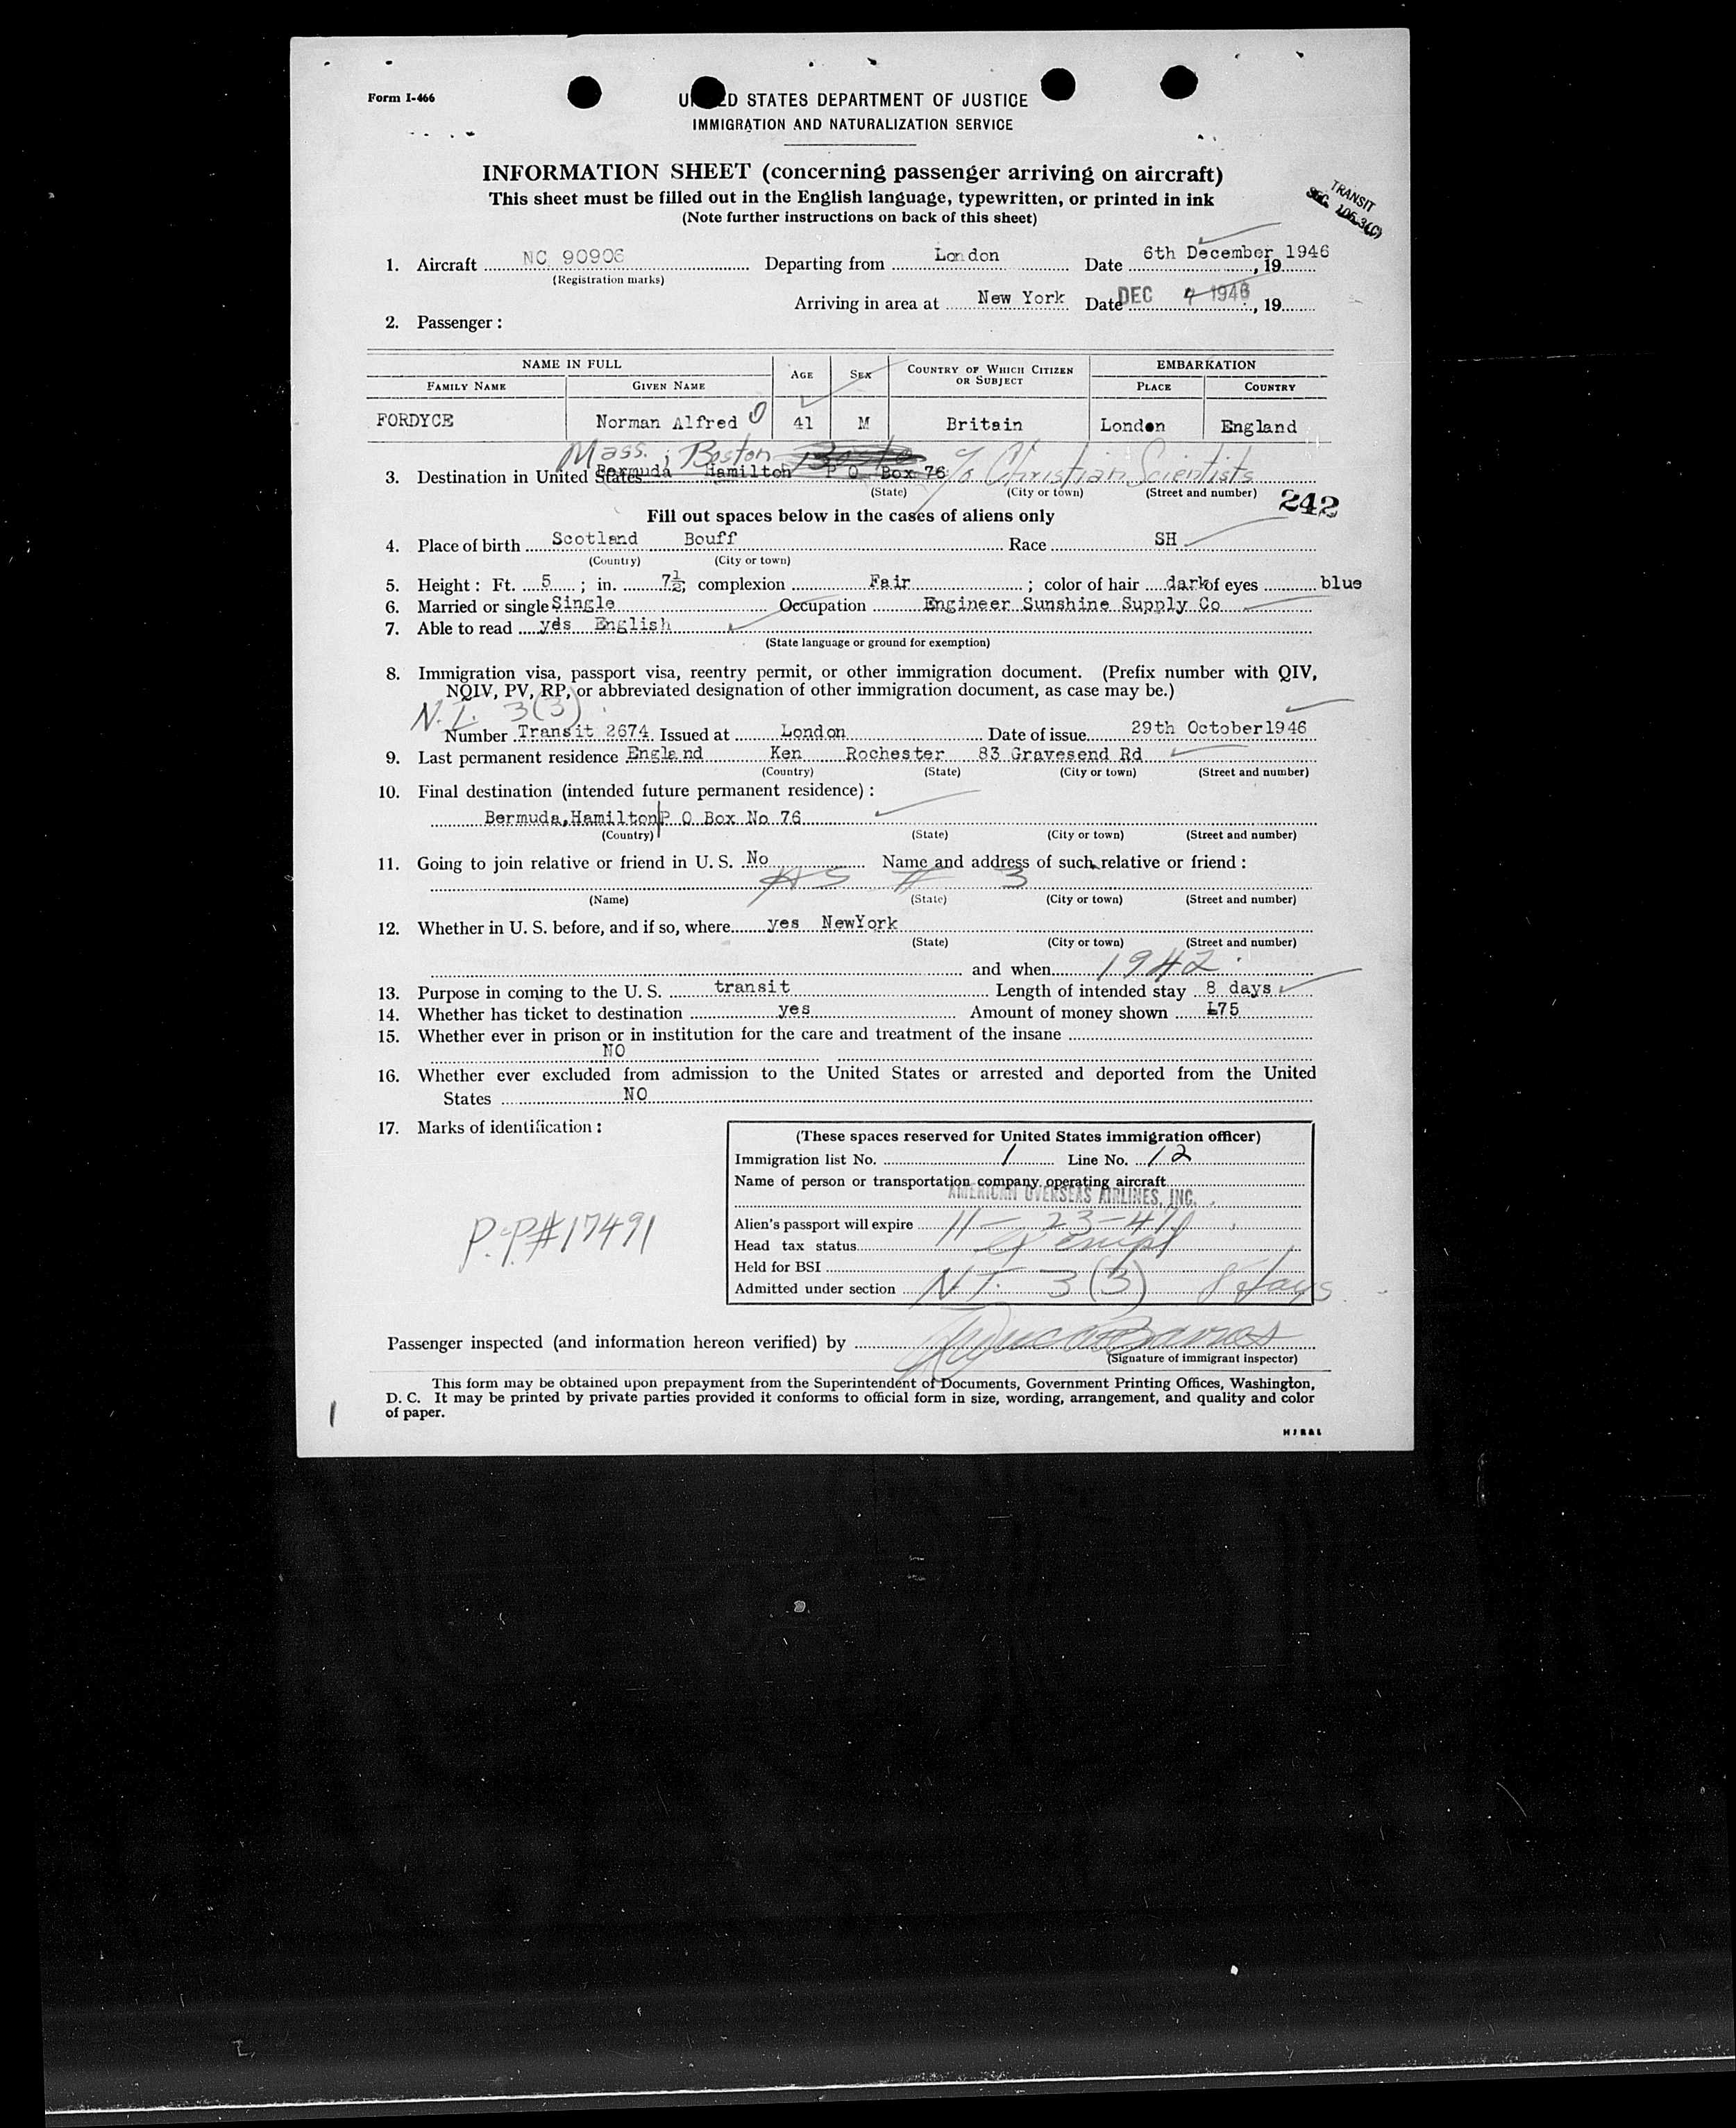 Form I-466
UNITED STATES DEPARTMENT OF JUSTICE
IMMIGRATION AND NATURALIZATION SERVICE
INFORMATION SHEET (concerning passenger arriving on aircraft)
This sheet must be filled out in the English language, typewritten, or printed in ink
(Note further instructions on back of this sheet)
TRANSIT
SEC. 106.3(C)
1. Aircraft NC 90906 Departing from London Date 6th December 1946, 19
(Registration marks)
Arriving in area at New York Date DEC 1946, 19
2. Passenger:
NAME IN FULL AGE SEX COUNTRY OF WHICH CITIZEN OR SUBJECT EMBARKATION
FAMILY NAME GIVEN NAME PLACE COUNTRY
FORDYCE Norman Alfred 41 M Britain London England
Mass. ; Boston c/o Christian Scientists
3. Destination in United States Bermuda Hamilton P O Box 76
(State) (City or town) (Street and number)
242
Fill out spaces below in the cases of aliens only
4. Place of birth Scotland Bouff Race SH
(Country) (City or town)
5. Height: Ft. 5; in. 7½; complexion Fair; color of hair dark of eyes blue
6. Married or single Single Occupation Engineer Sunshine Supply Co
7. Able to read yds English
(State language or ground for exemption)
8. Immigration visa, passport visa, reentry permit, or other immigration document. (Prefix number with QIV,
NQIV, PV, RP, or abbreviated designation of other immigration document, as case may be.)
N.I. 3(3)
Number Transit 2674 Issued at London Date of issue 29th October1946
9. Last permanent residence England Ken Rochester 83 Gravesend Rd
(Country) (State) (City or town) (Street and number)
10. Final destination (intended future permanent residence):
Bermuda, Hamilton P O Box No 76
(Country) (State) (City or town) (Street and number)
11. Going to join relative or friend in U. S. No Name and address of such relative or friend:
AS # 3
(Name) (State) (City or town) (Street and number)
12. Whether in U. S. before, and if so, where yes NewYork
(State) (City or town) (Street and number)
and when 1942
13. Purpose in coming to the U. S. transit Length of intended stay 8 days
14. Whether has ticket to destination yes Amount of money shown £75
15. Whether ever in prison or in institution for the care and treatment of the insane
NO
16. Whether ever excluded from admission to the United States or arrested and deported from the United
States NO
17. Marks of identification:
(These spaces reserved for United States immigration officer)
Immigration list No. 1 Line No. 12
Name of person or transportation company operating aircraft
AMERICAN OVERSEAS AIRLINES, INC.
Alien's passport will expire 11-23-47
Head tax status exempt
Held for BSI
Admitted under section N.I. 3(3) 8 days
P.P.#17491
Passenger inspected (and information hereon verified) by
(Signature of immigrant inspector)
This form may be obtained upon prepayment from the Superintendent of Documents, Government Printing Offices, Washington,
D. C. It may be printed by private parties provided it conforms to official form in size, wording, arrangement, and quality and color
of paper.